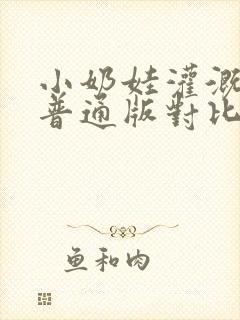 小奶娃灌溉
普通版對比
鱼和肉